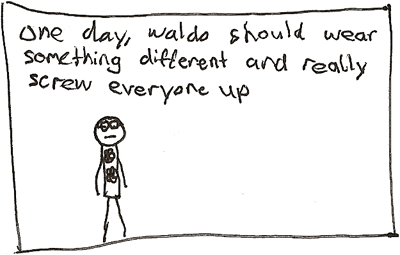 One day, waldo should wear
something different and really
screw everyone up